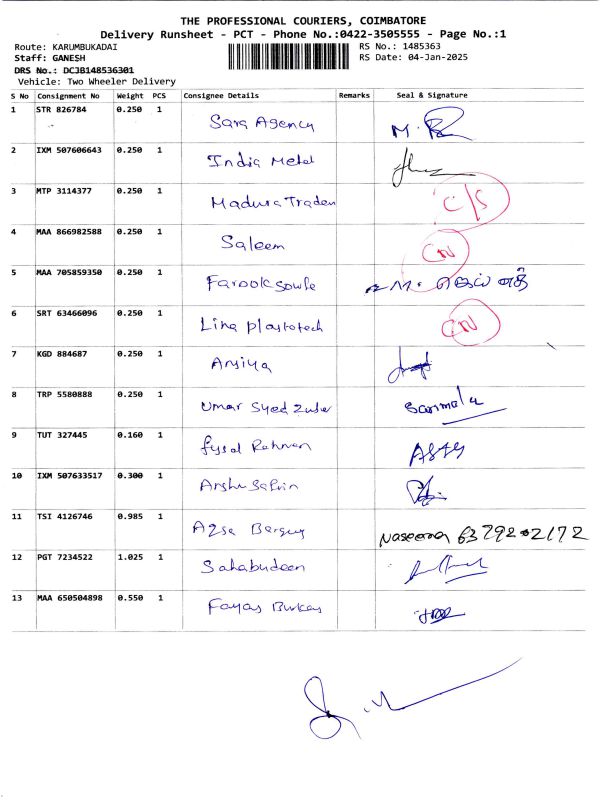 THE PROFESSIONAL COURIERS, COIMBATORE
Delivery Runsheet - PCT - Phone No.:0422-3505555 - Page No.:1
Route: KARUMBUKADAI RS No.: 1485363
Staff: GANESH RS Date: 04-Jan-2025
DRS No.: DCJB148536301
Vehicle: Two Wheeler Delivery
S No Consignment No Weight PCS Consignee Details Remarks Seal & Signature
1 STR 826784 0.250 1 Sara Agency
2 IXM 507606643 0.250 1 India Metal
3 MTP 3114377 0.250 1 Madura Traders C/S
4 MAA 866982588 0.250 1 Saleem CN
5 MAA 705859350 0.250 1 Farook
6 SRT 63466096 0.250 1 Lina plastotech CN
7 KGD 884687 0.250 1 Arsiya
8 TRP 5580888 0.250 1 Umar Syed Zuber Sarmala
9 TUT 327445 0.160 1 fysal Rehman
10 IXM 507633517 0.300 1
11 TSI 4126746 0.985 1 Naseema 63792 02172
12 PGT 7234522 1.025 1 Sahabudeen
13 MAA 650504898 0.550 1 Fayas